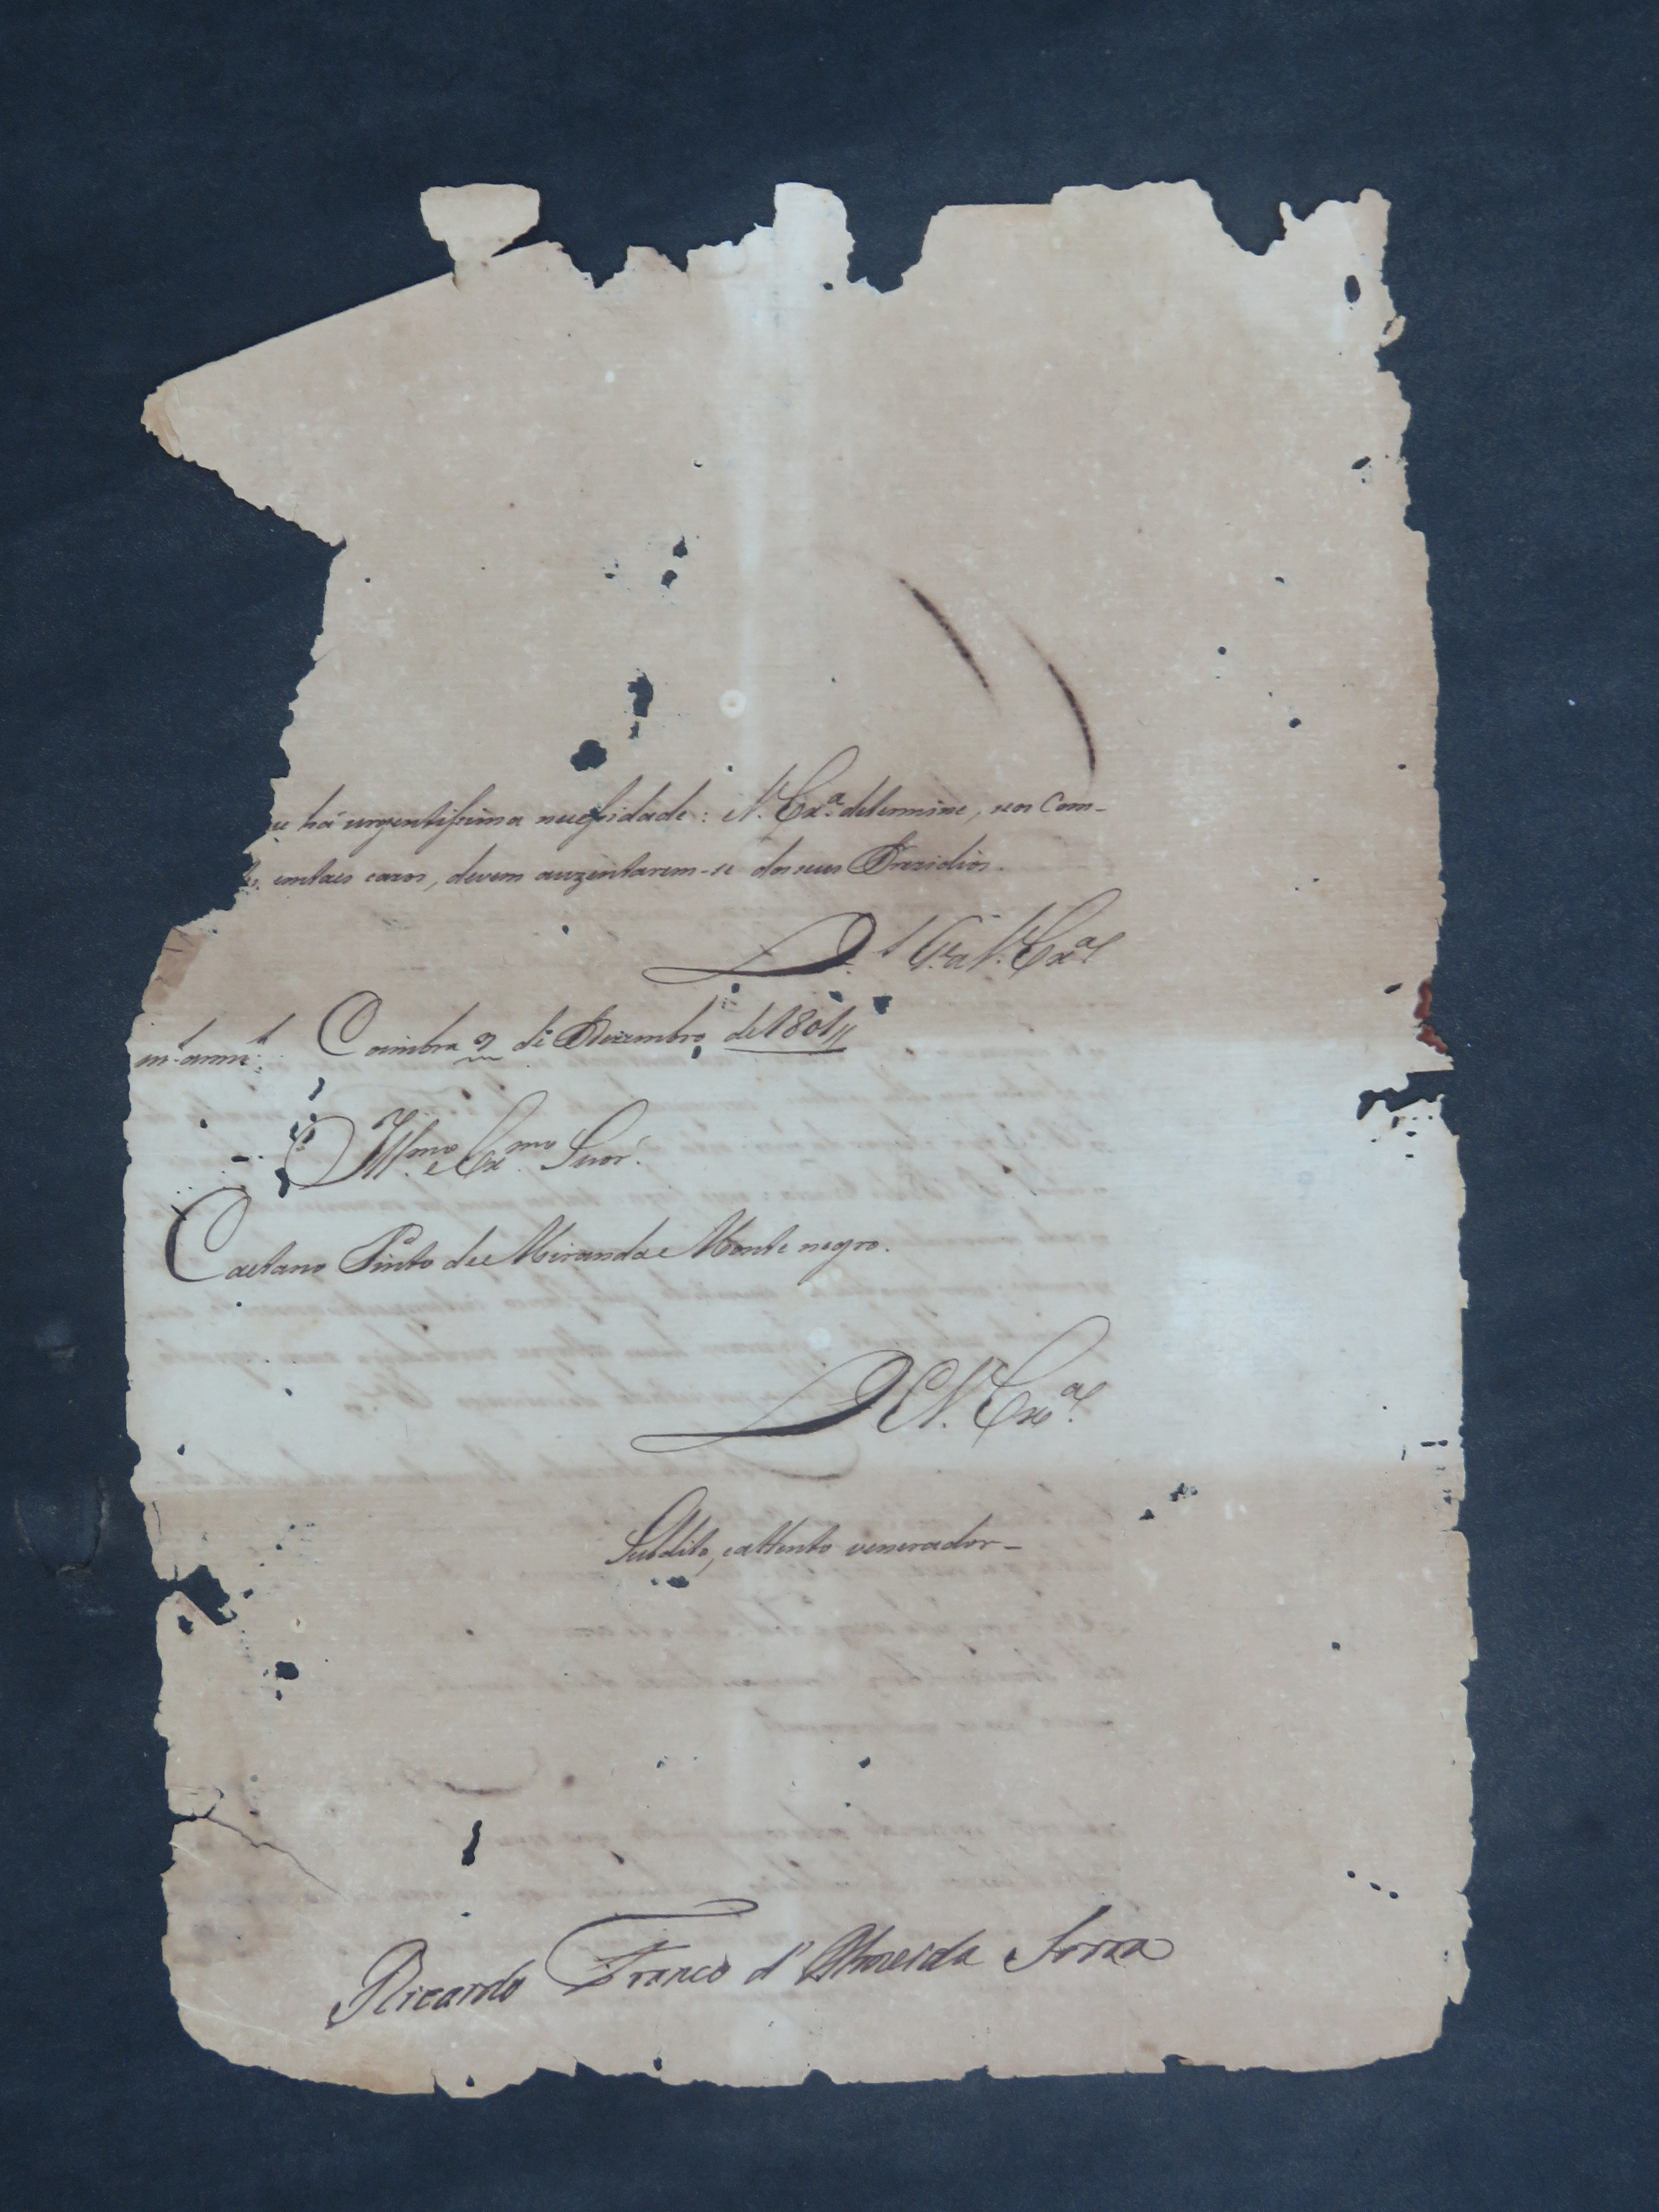 ue há urgentissima necessidade: V. Exª determine, se os Com-
emtaes cazos, devem auzentarem-se dos seus Prezidios.
D.ˢ G.ᵉ a V. Exª
Coimbra 9 de Dezembro de 1801//
Illmo e Exmo Snor.
Caetano Pinto de Miranda Monte negro.
De V. Exª
Subdito, e attento venerador_
Ricardo Franco d'Almeida Serra